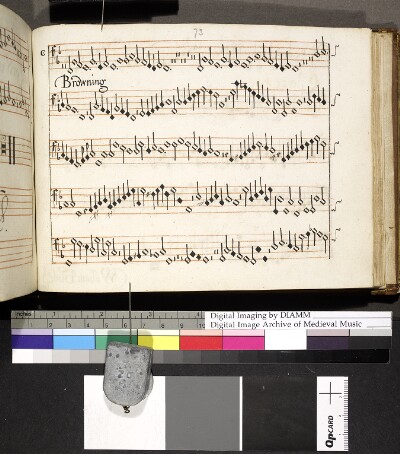 73
Browning
inches
Digital Imaging by DIAMM
Digital Image Archive of Medieval Music
QPCARD